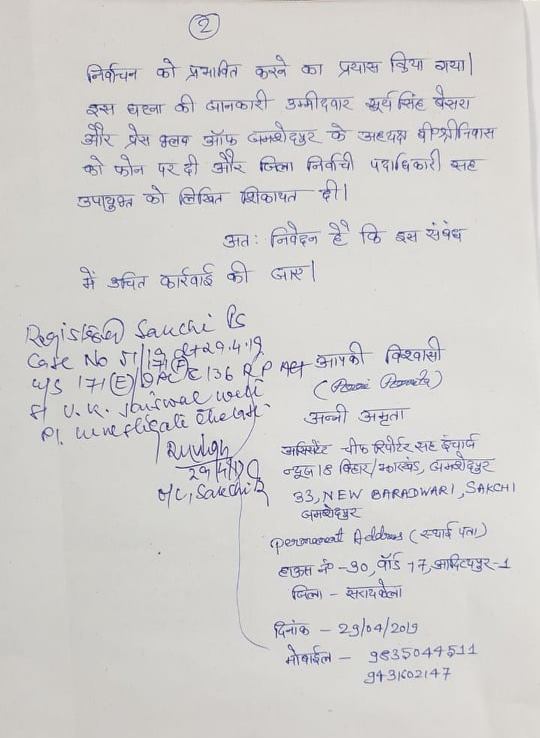 2
निर्वाचन को प्रभावित करने का प्रयास किया गया।
इस घटना की जानकारी उम्मीदवार सूर्य सिंह बेसरा
और प्रेस क्लब ऑफ जमशेदपुर के अध्यक्ष बी श्रीनिवास
को फोन पर दी और जिला निर्वाची पदाधिकारी सह
उपायुक्त को लिखित शिकायत दी।
अत: निवेदन है कि इस संबंध
में उचित कार्रवाई की जाए।
Sakchi PS
Case No 51/19 dt 29.4.19
u/s 171(E)/171(F) 136 RP Act
V.K. Jaiswal will
Pl. investigate the case
29/4/19
O/C, Sakchi
आपकी विश्वासी
अन्नी अमृता
असिस्टेंट चीफ रिपोर्टर सह इंचार्ज
न्यूज 18 बिहार/झारखंड, जमशेदपुर
33, NEW BARADWARI, SAKCHI
जमशेदपुर
Permanent Address (स्थाई पता)
हाऊस नं -30, वॉर्ड 17, आदित्यपुर-1
जिला - सरायकेला
दिनांक - 29/04/2019
मोबाईल - 9835044511
9431602147